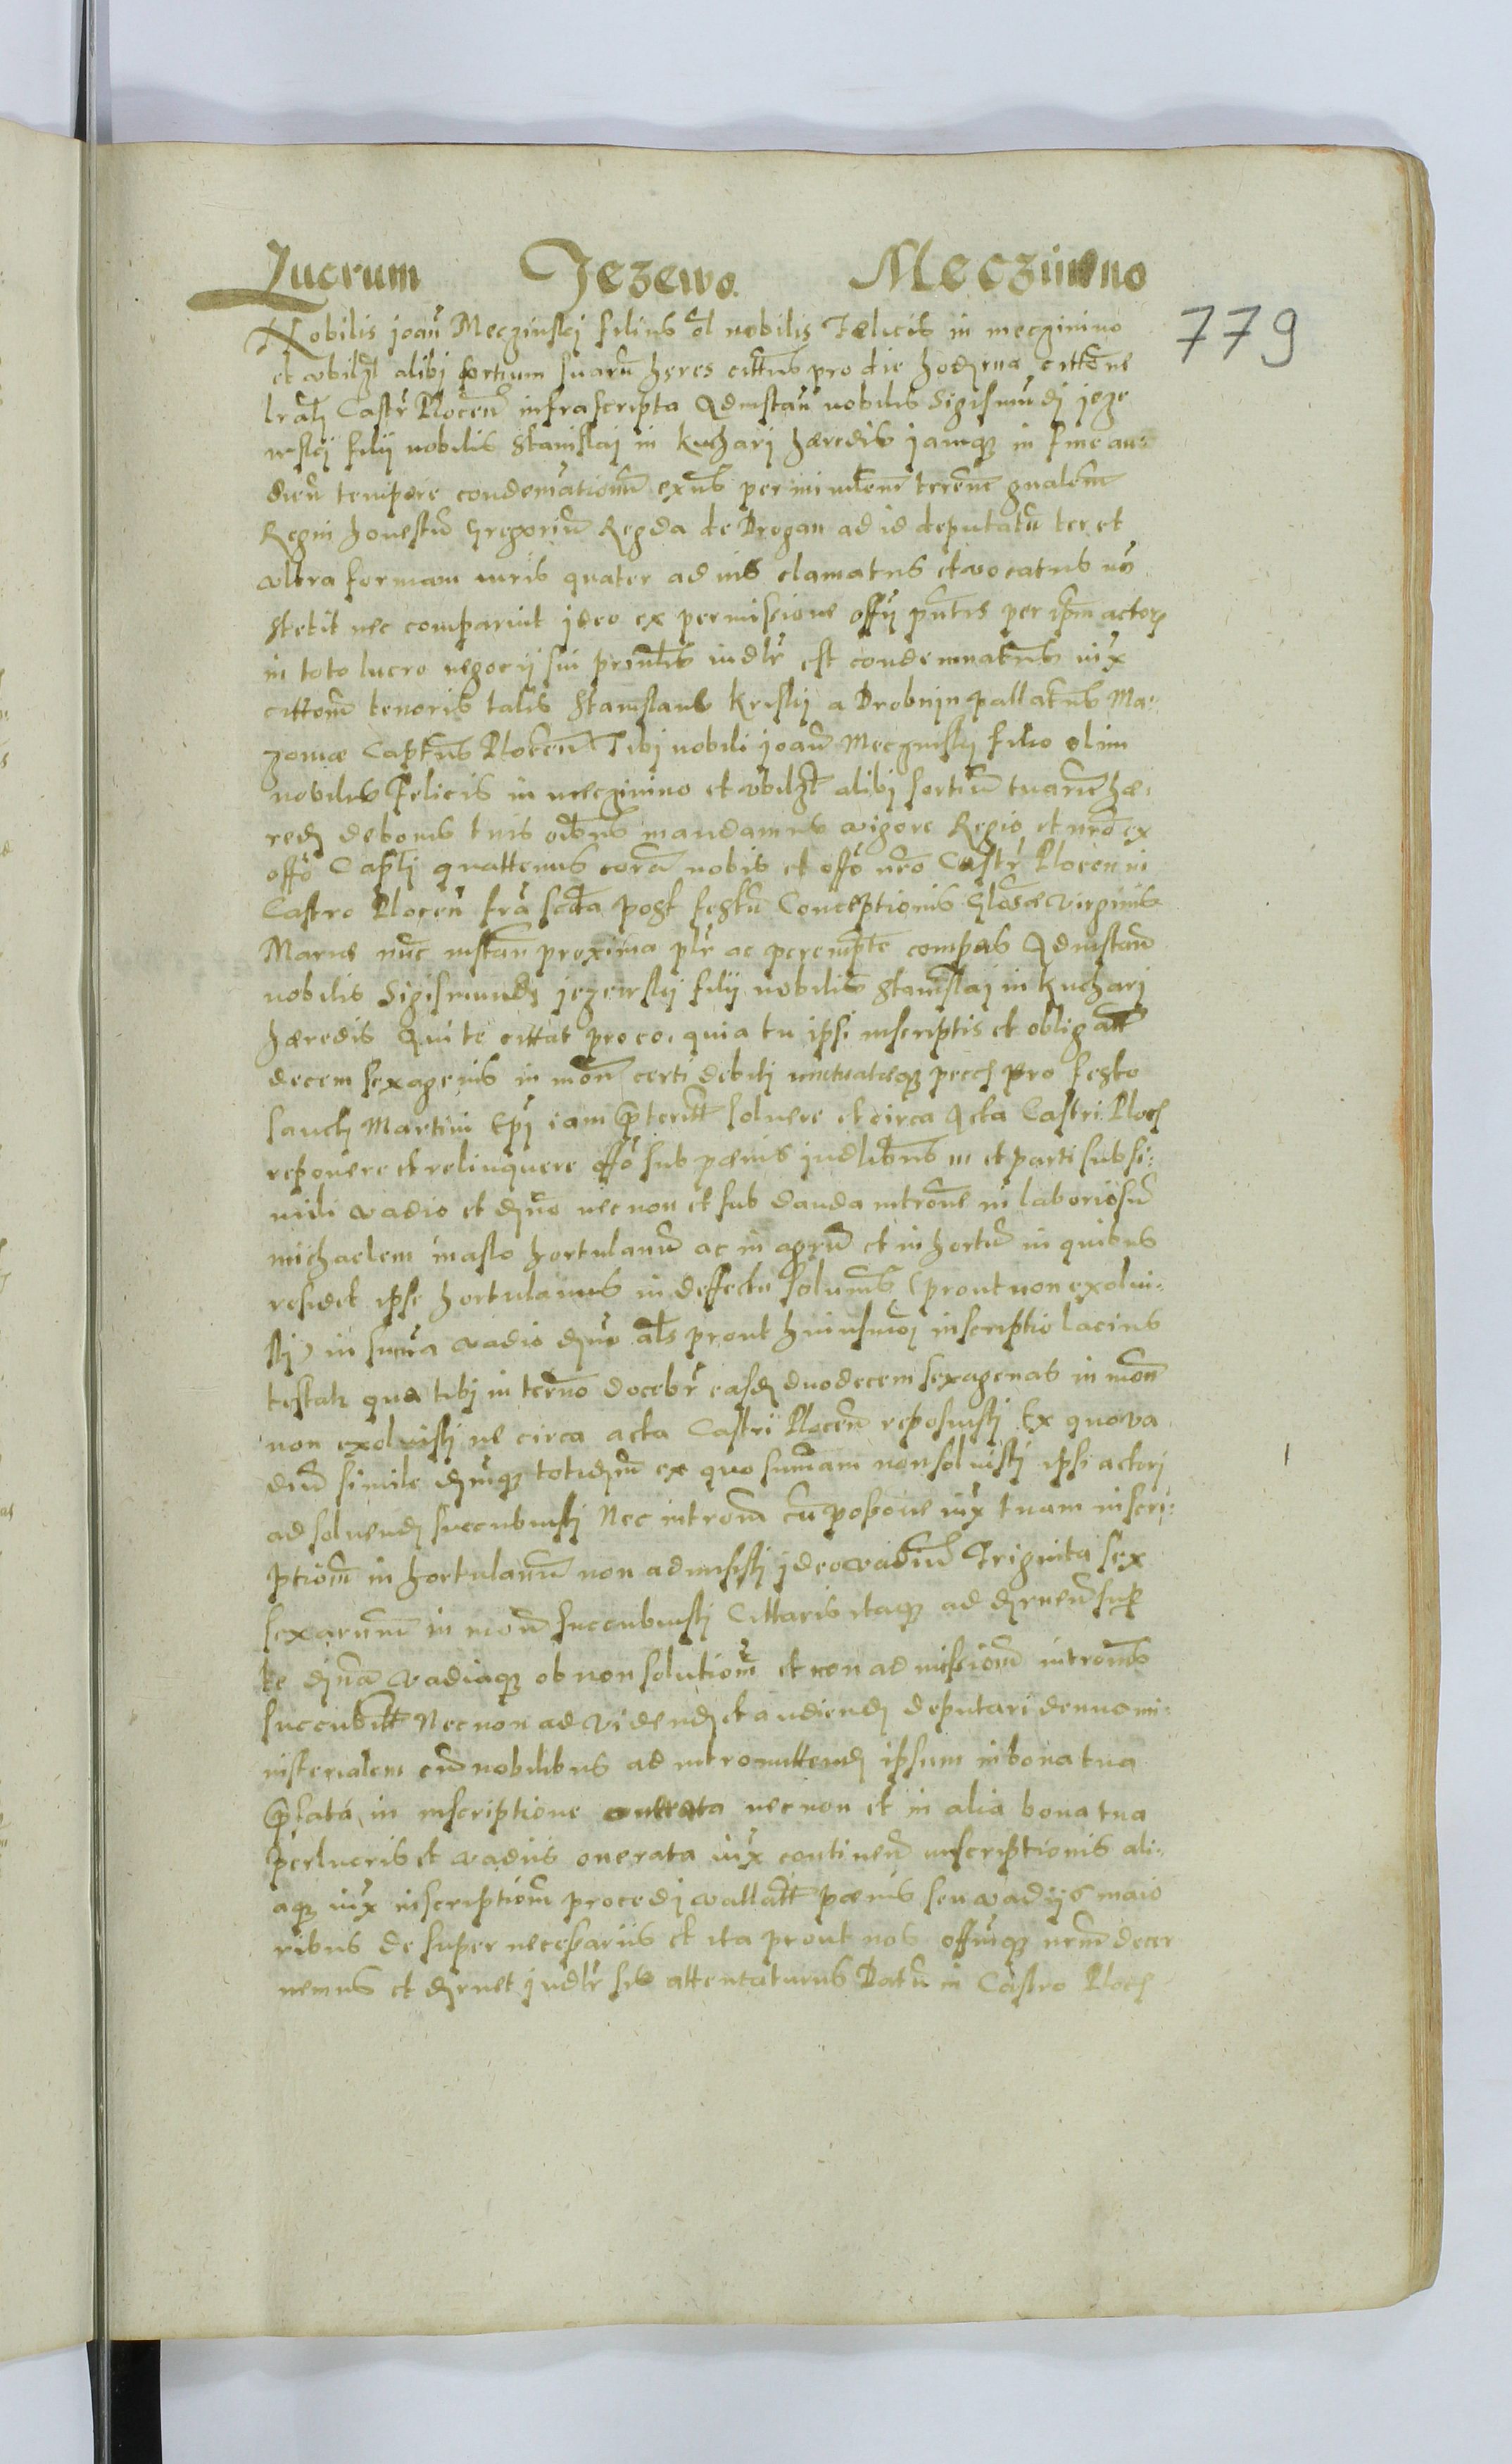 Lucrum Jezewo Meczinno
779
Nobilis joan̄ Meczinskj filius ol nobilis Fælicis in mecginino
et vbilꝫt alibj sortium suarū hęres cittatus pro die hodierna cittōne
lrāłj Castr̄ Plocen̄ infrascripta Ad instan̄ nobilis Sigismūdj jeze
wskj filij nobilis Stanislaj in kuchari hæredis jamqꝫ in fine au⸗
dien̄ tempore condemnationū exn̄s per ministr̄em terrēnē gnālem
Regni honestū Gregoriū Regda de Drogan ad id deputatū ter et
vltra formam iuris quater ad ius clamatus et vocatus nō
stetit nec comparuit jdeo ex permissione offij pn̄tis per ip̄m actorē
in toto lucro negocij sui prin̄lis iudlr̄ est condemnatus iux̄
cittōnē tenoris talis Stanislaus kriskj a Drobnyn pallatn̄s Ma⸗
zoviæ Capitn̄s Plocen̄ Tibj nobili joan̄ Meczinskj filio olim
nobilis Felicis in mecginino et vbilꝫt alibj sortiū tuarū hæ⸗
redj de bonis tuis oībus mandamus vigore Regio et nrō ex
offō Capłj quattenus corā nobis et offō nrō Castr̄ Plocen in
Castro Plocen̄ fr̄a scda post festū Conceptionis Glosæ virginis
Mariæ nūc instan̄ proxima plr̄ ac perempte compās Ad instan̄
nobilis Sigismundj jezewskj filij nobilis Stanislaj in kuchari
hæredis Qui te cittat pro eo, quia tu ipsi inscriptis et obligatt
decem sexagenis in mon̄ certi debiti mutuatæqꝫ pecē pro festo
Sanctj Martini Ep̄j iam p̄teritt solvere et circa Acta Castri Ploc̄
reponere et relinquere offō sub pænis judlibus iii et parti sub si⸗
mili vadio et dn̄o nec non et sub danda intrōne in laboriosū
michaelem maslo hortulanū ac in agrū et in hortū in quibus
residet ipse hortulanus in deffectu solutnis (prout non exolui⸗
stj) in summa vadio dn̄o als prout huiusmoj inscriptio lacius
testatr qua tibj in terno docebr̄ easdē duodecem sexagenas in mon̄
non exoluistj ne circa acta Castrj Plocen̄ reposuistj Ex quo va
diū simile dn̄mqꝫ totidem ex quo summam non soluistj ipsi actorj
ad soluendj succubuistj Nec intrōnē cū possione iux̄ tuam inscri⸗
ptionē in hortulanū non admisistj jdeo vadiū Triginta sex
sexarum in mon̄ succubuistj Cittaris itaqꝫ ad dcrnen̄ sup̄
te dn̄a vadiaqꝫ ob non solutionē et non admissionē intronis
succubitt Nec non ad videndj et audiendj deputari denuo mi⸗
nisterialem cū nobilibus ad intromittendj ipsum in bona tua
p̄fata in inscriptione contenta nec non et in alia bona tua
per lucris et vadiis onerata iux̄ continen̄ inscriptionis ali⸗
aqꝫ iux̄ inscriptionē procedj vallatt pænis seu vadijs maio
ribus de super necessariis et ita prout nos offmqꝫ nrm decer
nemus et dcrnet judlr̄ sis attentaturus Datū in Castro Ploc̄